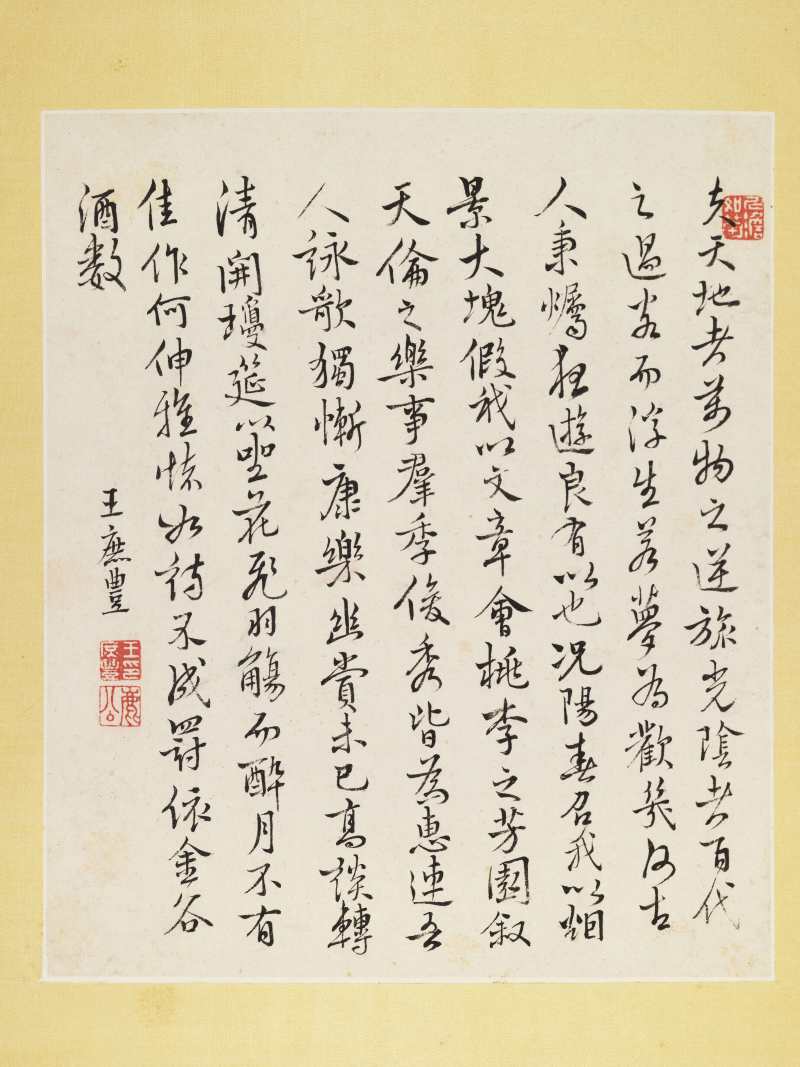 夫天地者萬物之逆旅光陰者百代
之過客而浮生若夢為歡幾何古
人秉爥夜遊良有以也况陽春召我以烟
景大塊假我以文章會桃李之芳園叙
天倫之樂事羣季俊秀皆為惠連吾
人詠歌獨慚康樂幽賞未已高談轉
清開瓊筵以坐花飛羽觴而醉月不有
佳作何伸雅懷如詩不成罰依金谷
酒数
王庶豐